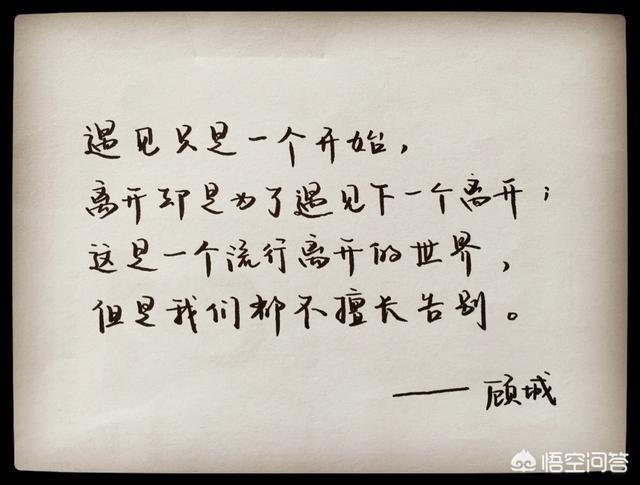 遇见只是一个开始，
离开却是为了遇见下一个离开；
这是一个流行离开的世界，
但是我们都不擅长告别。
——顾城
悟空问答